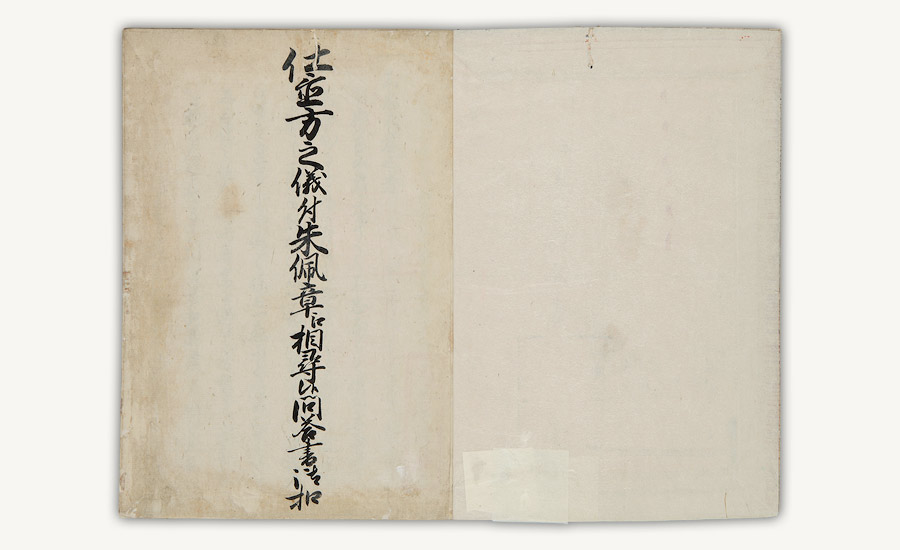 仕置方之儀付朱佩章江相尋候問答書扣